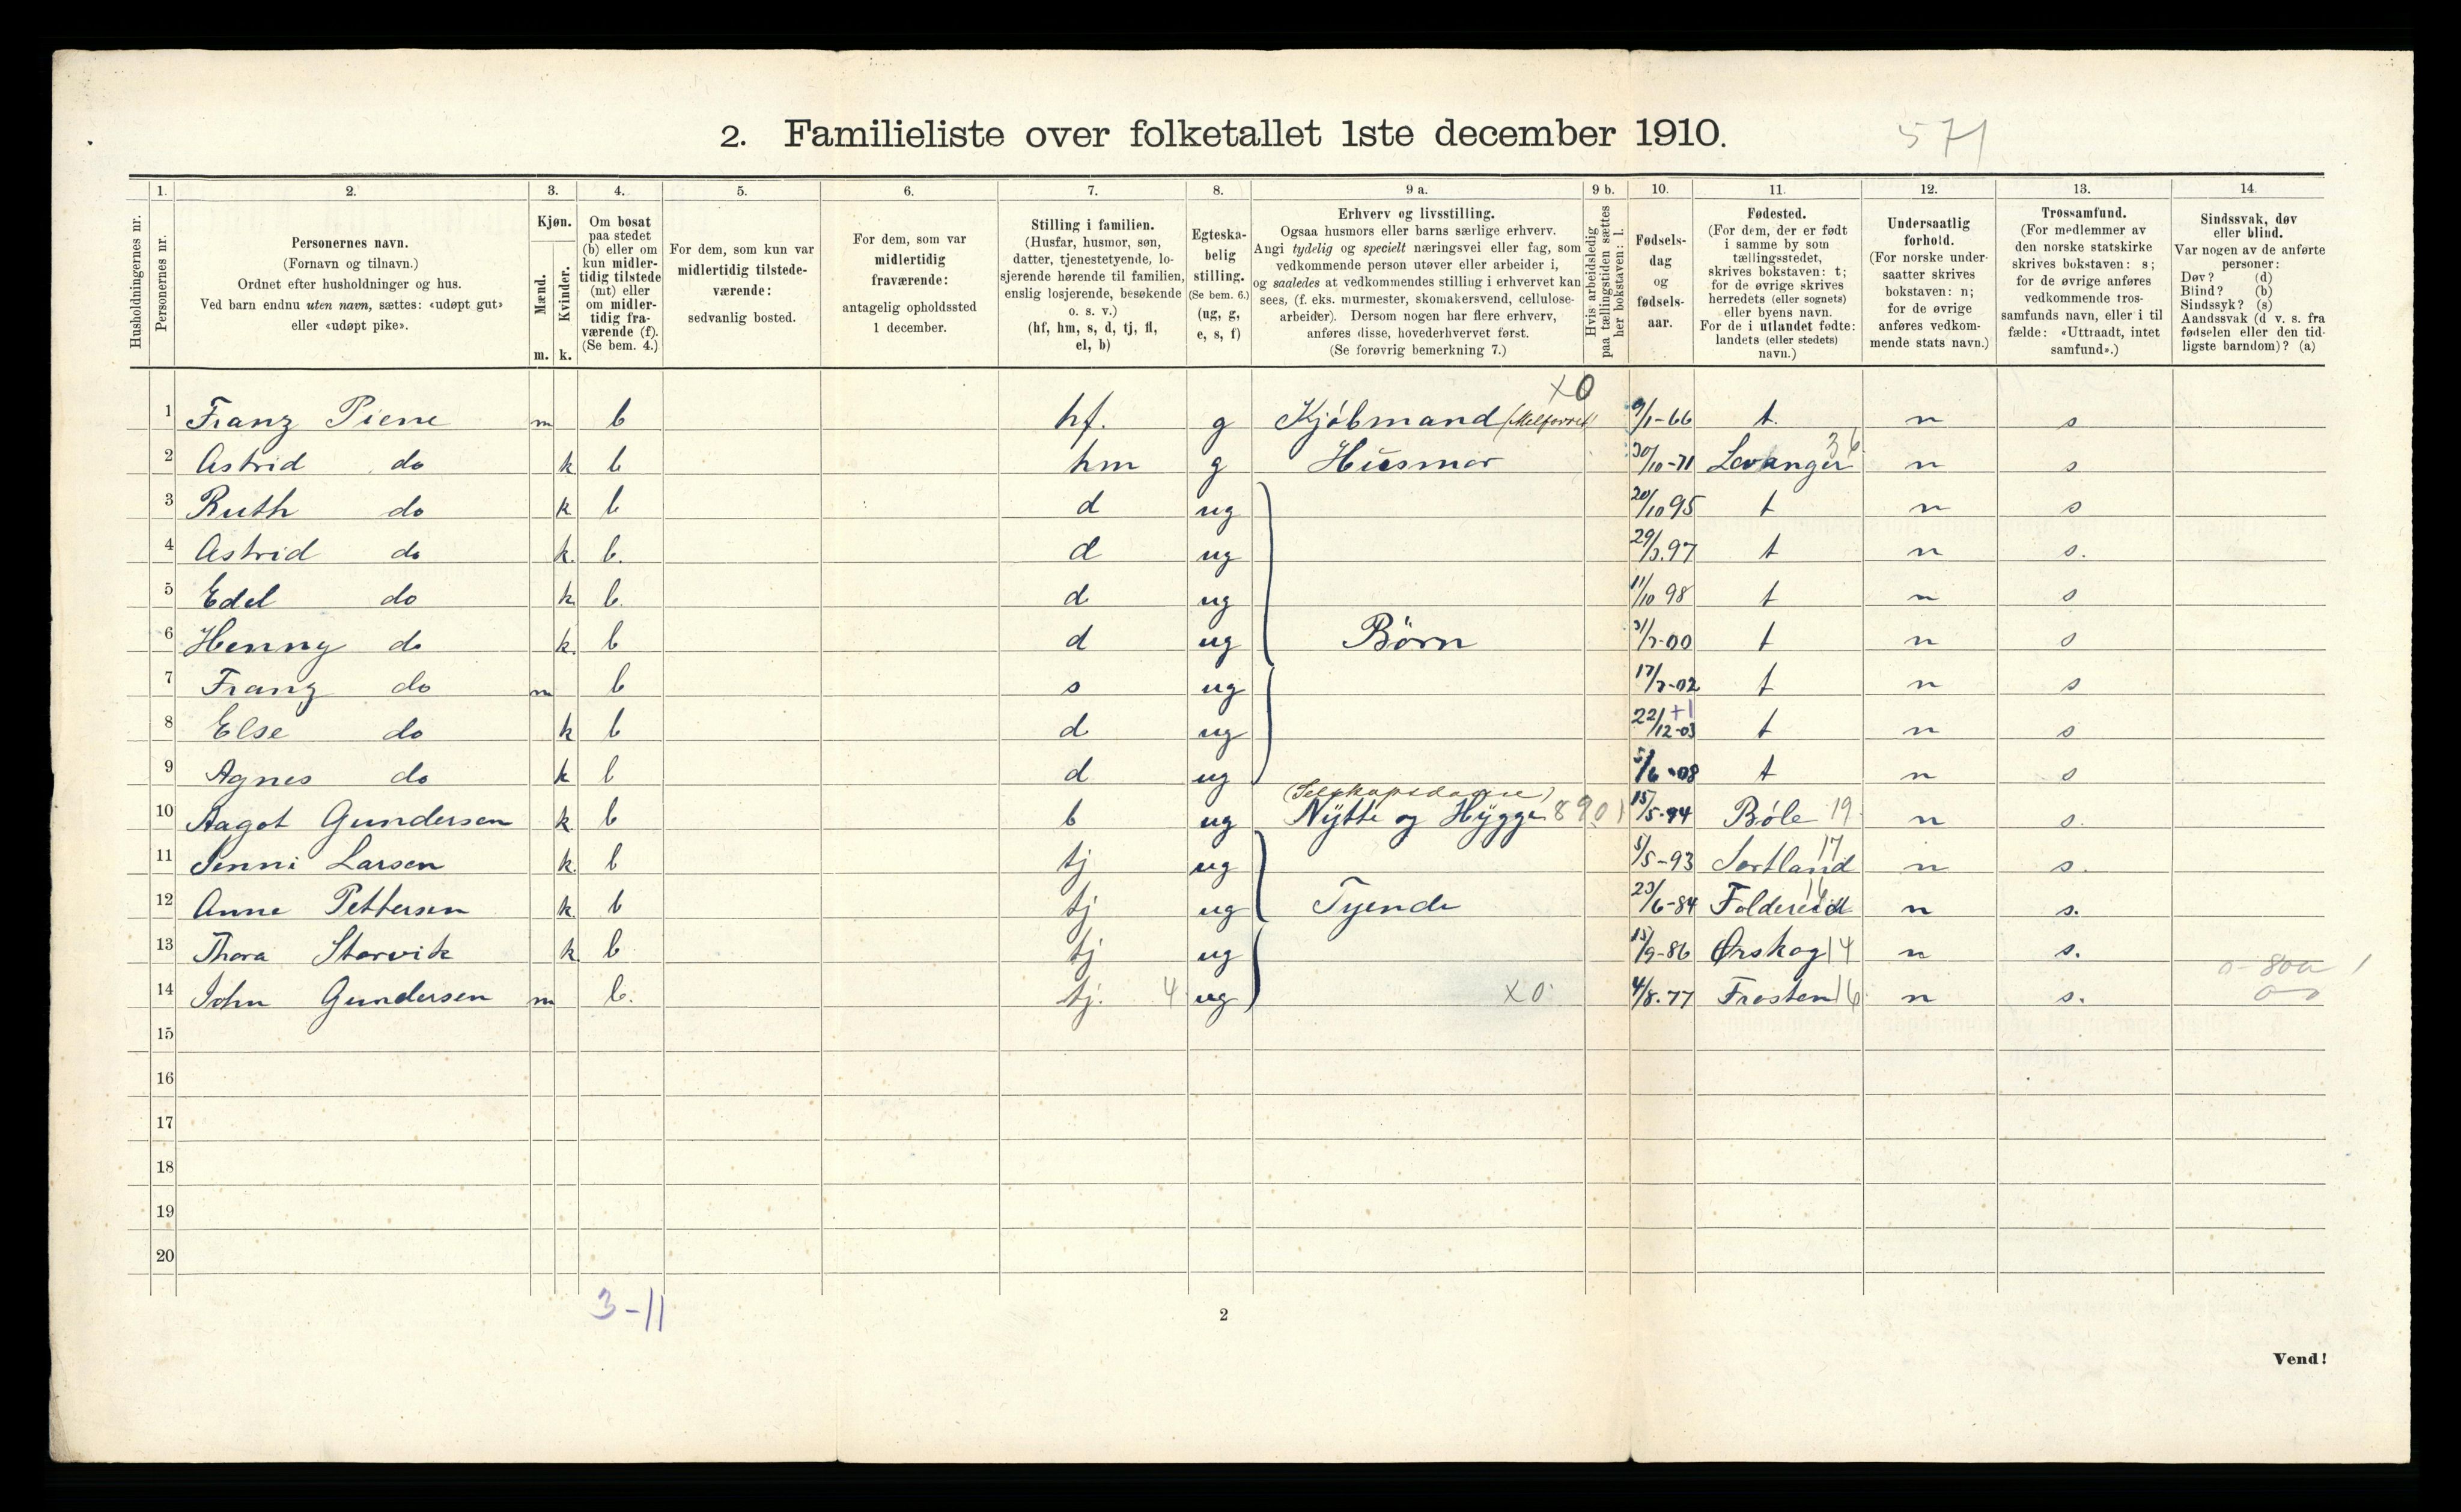 2. Familieliste over folketallet 1ste december 1910.
571
Husholdningernes nr.
1. Personernes nr.
2. Personernes navn.
(Fornavn og tilnavn.)
Ordnet efter husholdninger og hus.
Ved barn endnu uten navn, sættes: «udøpt gut»
eller «udøpt pike».
3. Kjøn.
Mænd. m.
Kvinder. k.
4. Om bosat
paa stedet
(b) eller om
kun midler-
tidig tilstede
(mt) eller
om midler-
tidig fra-
værende (f).
(Se bem. 4.)
5. For dem, som kun var
midlertidig tilstede-
værende:
sedvanlig bosted.
6. For dem, som var
midlertidig
fraværende:
antagelig opholdssted
1 december.
7. Stilling i familien.
(Husfar, husmor, søn,
datter, tjenestetyende, lo-
sjerende hørende til familien,
enslig losjerende, besøkende
o. s. v.)
(hf, hm, s, d, tj, fl,
el, b)
8. Egteska-
belig
stilling.
(Se bem. 6.)
(ug, g,
e, s, f)
9 a. Erhverv og livsstilling.
Ogsaa husmors eller barns særlige erhverv.
Angi tydelig og specielt næringsvei eller fag, som
vedkommende person utøver eller arbeider i,
og saaledes at vedkommendes stilling i erhvervet kan
sees, (f. eks. murmester, skomakersvend, cellulose-
arbeider). Dersom nogen har flere erhverv,
anføres disse, hovederhvervet først.
(Se forøvrig bemerkning 7.)
9 b. Hvis arbeidsledig
paa tællingstiden sættes
her bokstaven: l.
10. Fødsels-
dag
og
fødsels-
aar.
11. Fødested.
(For dem, der er født
i samme by som
tællingsstedet,
skrives bokstaven: t;
for de øvrige skrives
herredets (eller sognets)
eller byens navn.
For de i utlandet fødte:
landets (eller stedets)
navn.)
12. Undersaatlig
forhold.
(For norske under-
saatter skrives
bokstaven: n;
for de øvrige
anføres vedkom-
mende stats navn.)
13. Trossamfund.
(For medlemmer av
den norske statskirke
skrives bokstaven: s;
for de øvrige anføres
vedkommende tros-
samfunds navn, eller i til
fælde: «Uttraadt, intet
samfund».)
14. Sindssvak, døv
eller blind.
Var nogen av de anførte
personer:
Døv? (d)
Blind? (b)
Sindssyk? (s)
Aandssvak (d v. s. fra
fødselen eller den tid-
ligste barndom)? (a)
x0
1 Franz Piene m b hf. g Kjöbmand 9/1-66 t. n s
2 Astrid do k b hm g Husmor 30/10-71 Levanger 36 n s
3 Ruth do k b d ug 20/10 95 t n s
4 Astrid do k. b. d ug t n s.
5 Edel do k b. d ug 11/10 98 t n s
6 Henny do k. b d ug Börn t n s
7 Franz do m b s ug t n s
+1
8 Else do k b d ug 22/12-03 t n s
9 Agnes do k b d ug 5/6-08 t n s
(Selskapsdame)
10 Aagot Gundersen k b b ug Nytte og Hygge 8901 15/5-94 Böle 19 n s.
11 Jenni Larsen k. b tj ug 5/5-93 Sortland 17 n s.
12 Anne Pettersen k b tj ug Tyende 23/6-84 Foldereid 16 n s.
13 Thora Storvik k b tj ug 15/9-86 Ørskog 14 n s.
14 John Gundersen m b. tj. 4 ug x0 4/8-77 Frosten 16 n s. 0-800 1
00
15
16
17
18
19
20
3-11
2
Vend!